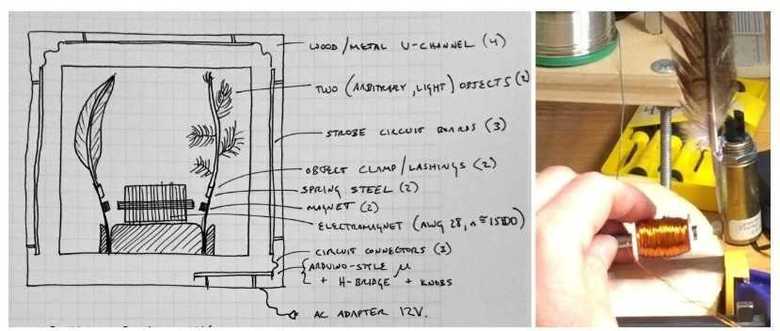 WOOD/METAL U-CHANNEL (4)
TWO (ARBITRARY, LIGHT) OBJECTS (2)
STROBE CIRCUIT BOARDS (3)
OBJECT CLAMP/LASHINGS (2)
SPRING STEEL (2)
MAGNET (2)
ELECTROMAGNET (AWG 28, n≅1500)
CIRCUIT CONNECTORS (2)
ARDUINO-STYLE μ
+ H-BRIDGE + KNOBS
AC ADAPTER 12V.